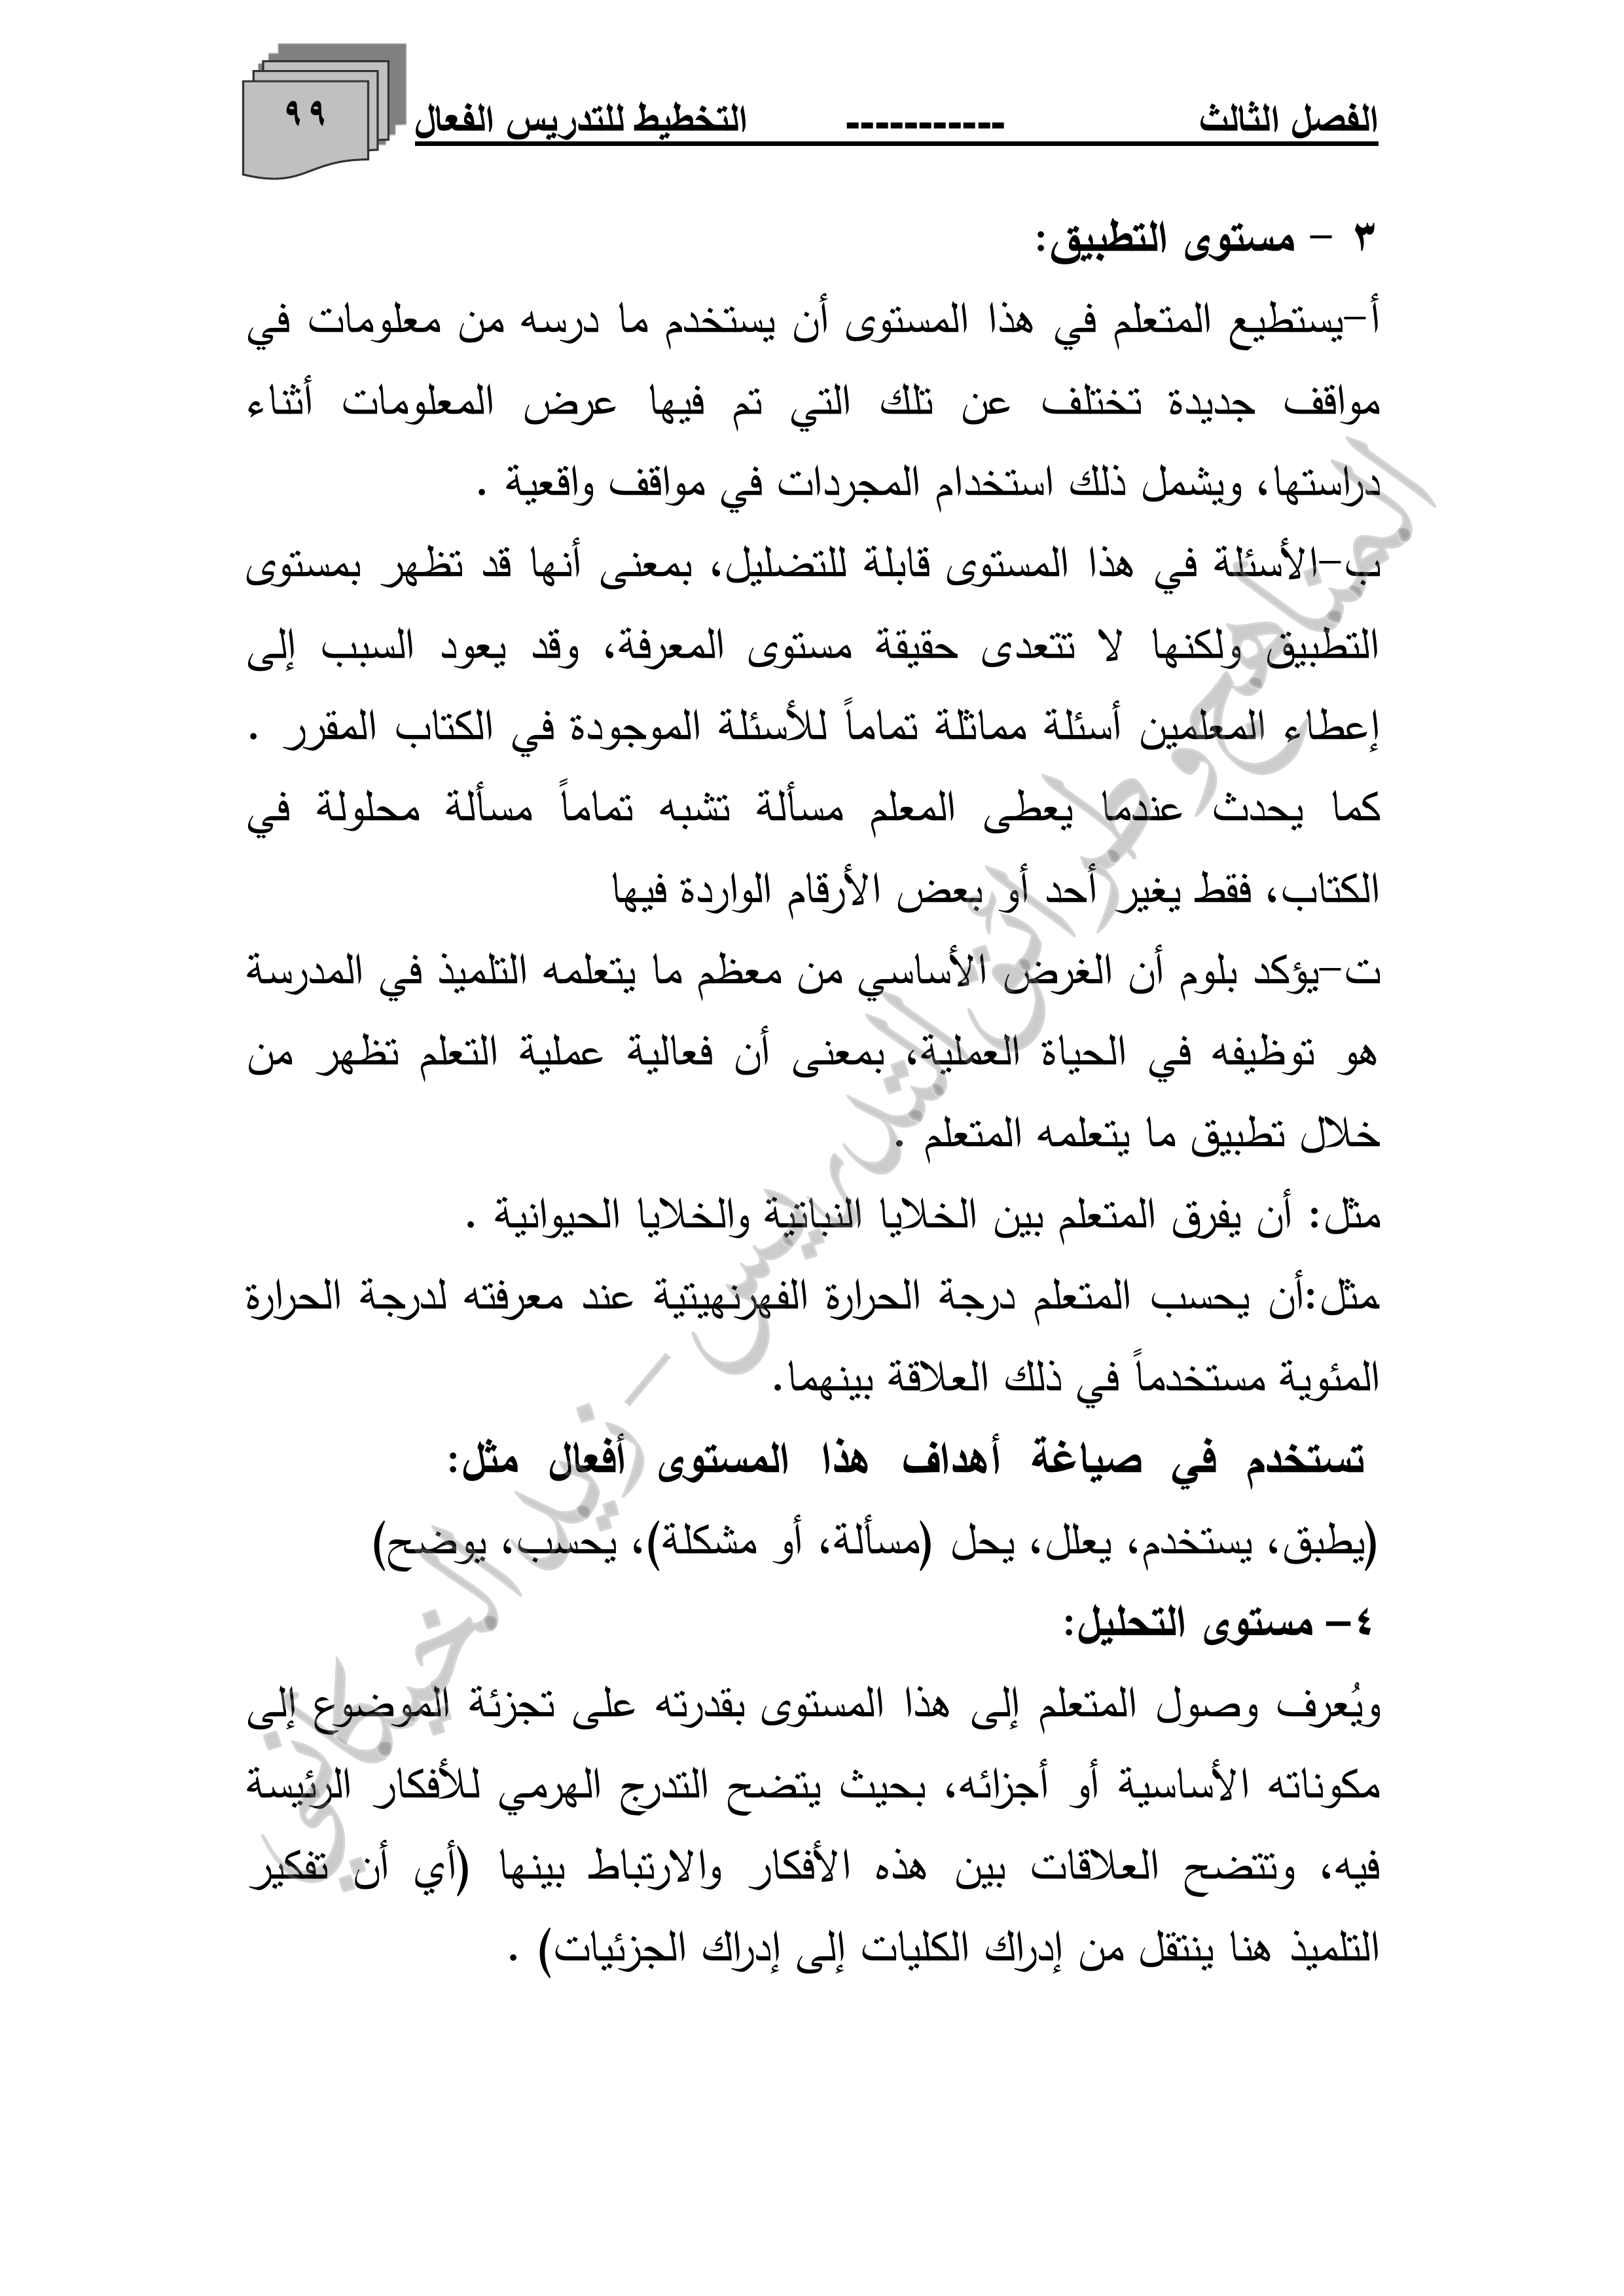 الفصل الثالث ----------- التخطيط للتدريس الفعال ٩٩
٣ – مستوى التطبيق:
أ–يستطيع المتعلم في هذا المستوى أن يستخدم ما درسه من معلومات في
مواقف جديدة تختلف عن تلك التي تم فيها عرض المعلومات أثناء
دراستها، ويشمل ذلك استخدام المجردات في مواقف واقعية .
ب–الأسئلة في هذا المستوى قابلة للتضليل، بمعنى أنها قد تظهر بمستوى
التطبيق ولكنها لا تتعدى حقيقة مستوى المعرفة، وقد يعود السبب إلى
إعطاء المعلمين أسئلة مماثلة تماماً للأسئلة الموجودة في الكتاب المقرر .
كما يحدث عندما يعطى المعلم مسألة تشبه تماماً مسألة محلولة في
الكتاب، فقط يغير أحد أو بعض الأرقام الواردة فيها
ت–يؤكد بلوم أن الغرض الأساسي من معظم ما يتعلمه التلميذ في المدرسة
هو توظيفه في الحياة العملية، بمعنى أن فعالية عملية التعلم تظهر من
خلال تطبيق ما يتعلمه المتعلم .
مثل: أن يفرق المتعلم بين الخلايا النباتية والخلايا الحيوانية .
مثل:أن يحسب المتعلم درجة الحرارة الفهرنهيتية عند معرفته لدرجة الحرارة
المئوية مستخدماً في ذلك العلاقة بينهما.
تستخدم في صياغة أهداف هذا المستوى أفعال مثل:
(يطبق، يستخدم، يعلل، يحل (مسألة، أو مشكلة)، يحسب، يوضح)
٤– مستوى التحليل:
ويُعرف وصول المتعلم إلى هذا المستوى بقدرته على تجزئة الموضوع إلى
مكوناته الأساسية أو أجزائه، بحيث يتضح التدرج الهرمي للأفكار الرئيسة
فيه، وتتضح العلاقات بين هذه الأفكار والارتباط بينها (أي أن تفكير
التلميذ هنا ينتقل من إدراك الكليات إلى إدراك الجزئيات) .
المناهج وطرائق التدريس – زيد الخيكاني